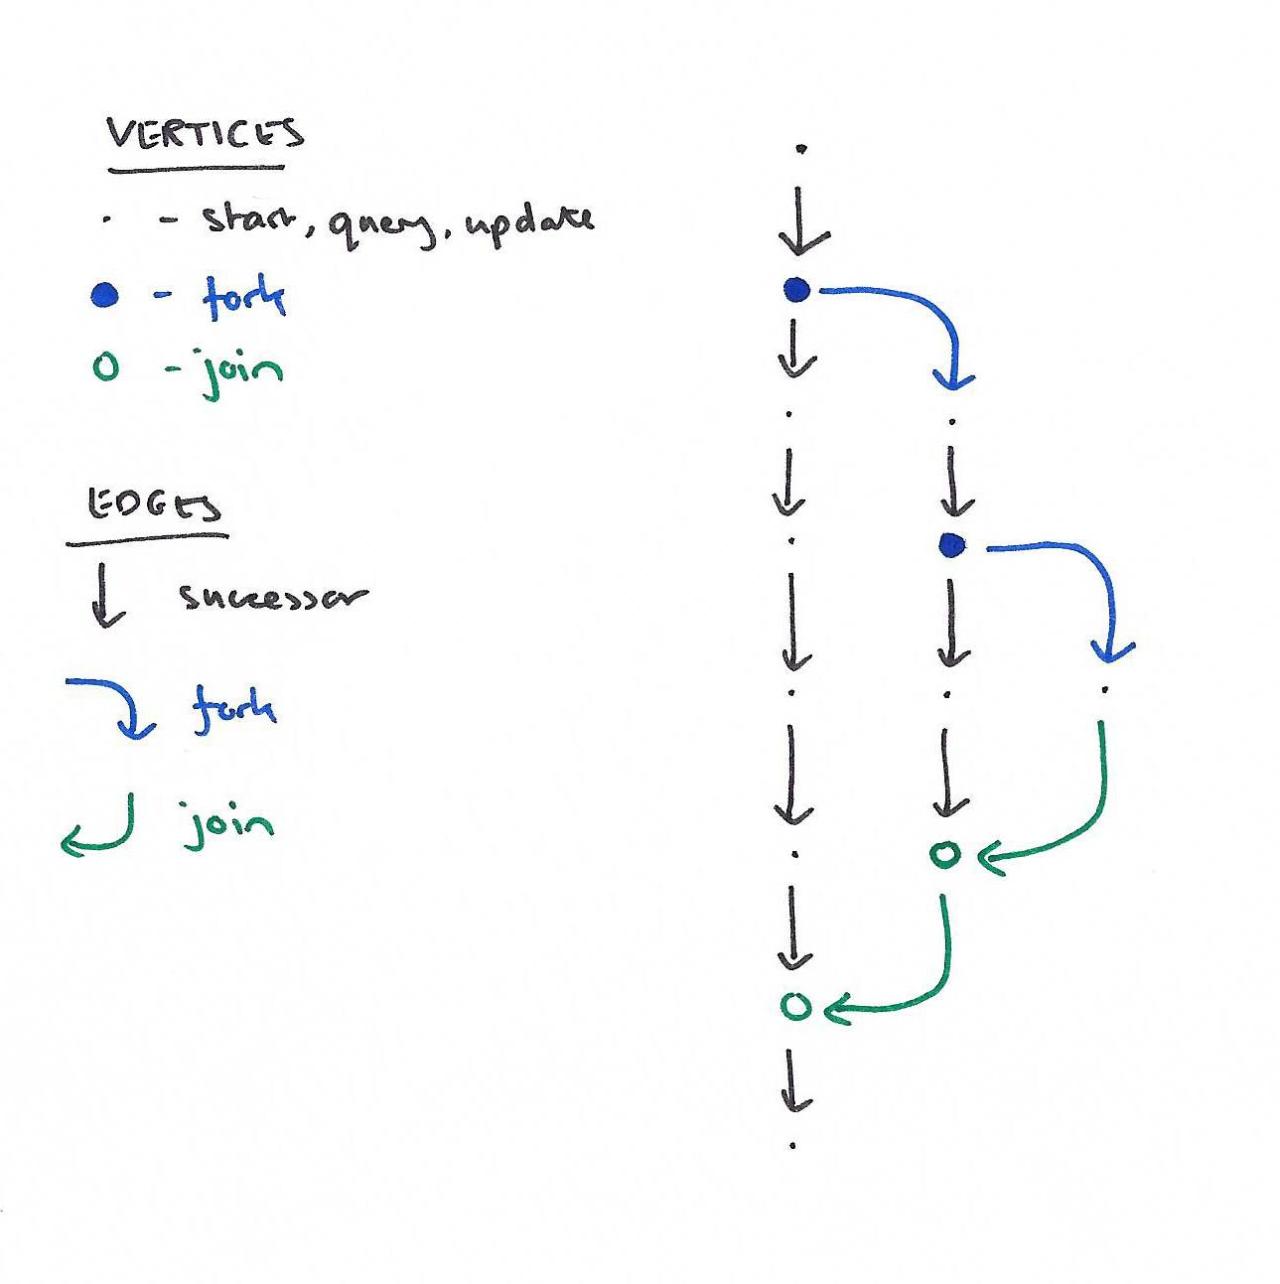 VERTICES
· - start, query, update
- fork
- join
EDGES
successor
fork
join